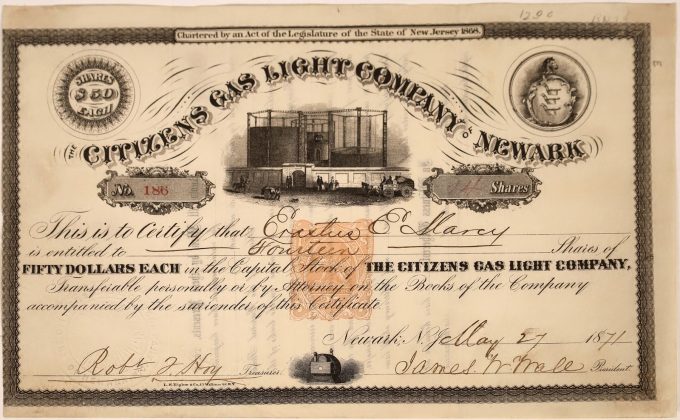 1200
Chartered by an Act of the Legislature of the State of New Jersey 1868.
SHARES
$50
EACH
THE CITIZENS GAS LIGHT COMPANY OF NEWARK
No. 186
Shares
This is to Certify that Erastus E Marcy
is entitled to Fourteen Shares of
FIFTY DOLLARS EACH in the Capital Stock of THE CITIZENS GAS LIGHT COMPANY,
Transferable personally or by Attorney on the Books of the Company
accompanied by the surrender of this Certificate
Newark, N.J. May 27 1871
Robt J. Hoy Treasurer. James W Wade President.